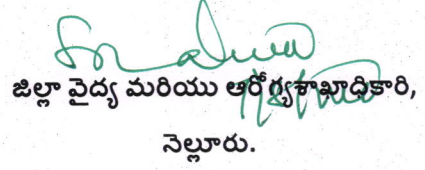 జిల్లా వైద్య మరియు ఆరోగ్యశాఖాధికారి,
నెల్లూరు.